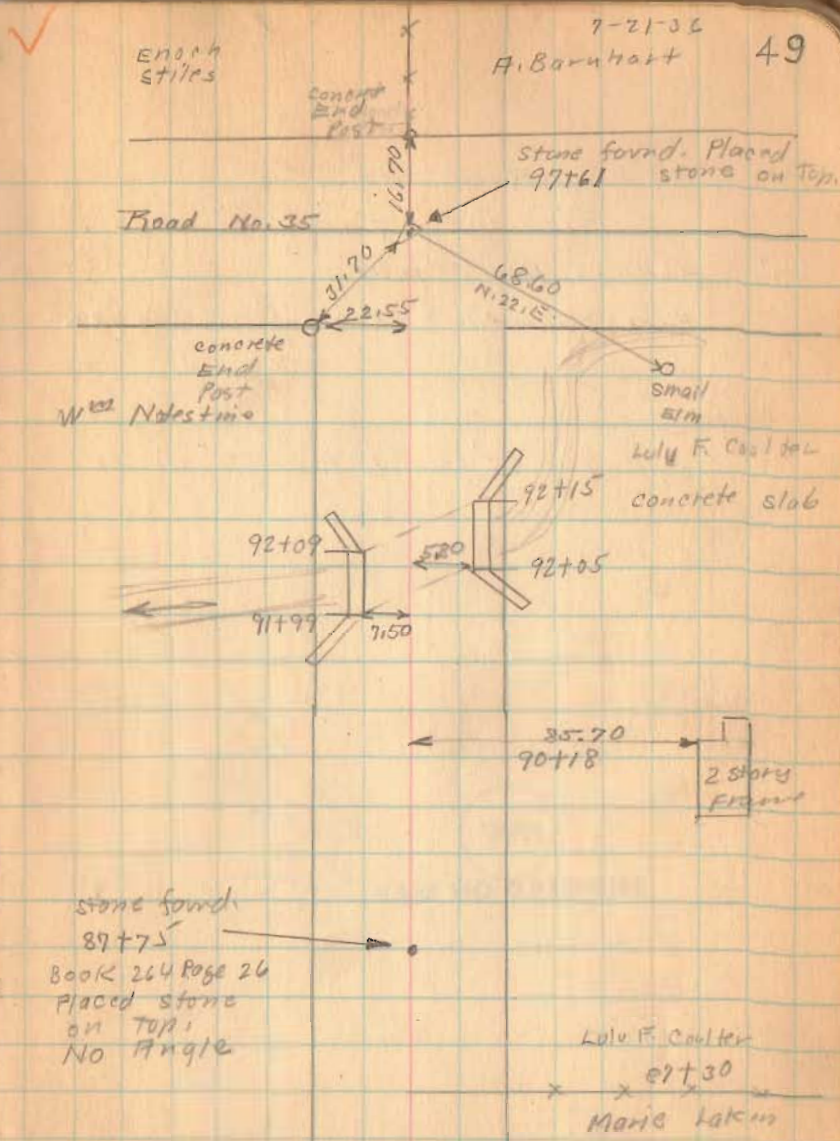 7-21-36
49
Enoch
Stiles
A. Barnhart
Concrete
End
Post
19.20
stone found. Placed
97+61 stone on Top.
Road No. 35
31.70
68.60
N. 22. E.
22.55
concrete
End
Post
Small
Elm
Wm Notestine
Lulu F. Coulter
92+15
concrete slab
92+09
5.20
92+05
91+99
7.50
85.70
90+18
2 story
Frame
stone found.
87+75
Book 264 Page 26
Placed stone
on Top.
No Angle
Lulu F. Coulter
87+30
Marie Lakin